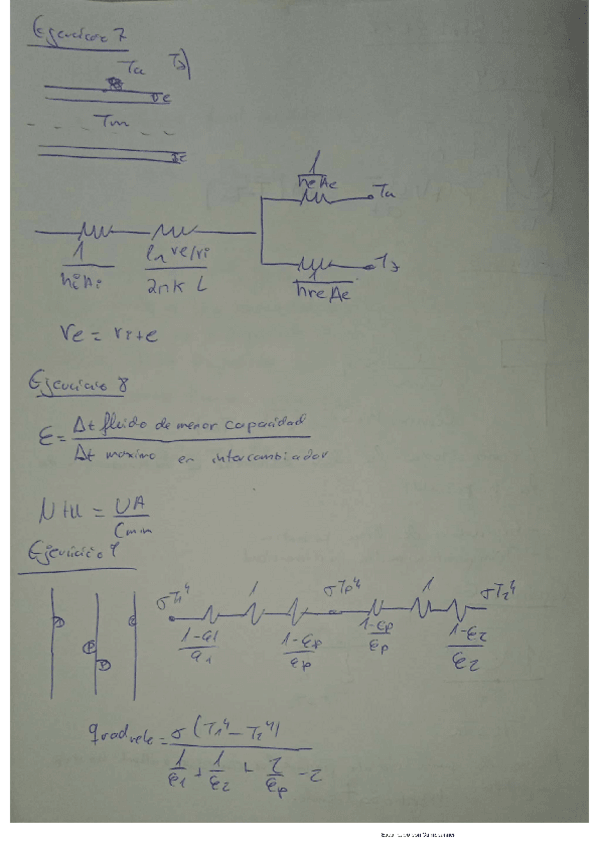 Ejercicio 7
Ta T∞
Tm
1/(heAe) Ta
1/(hiAi) ln re/ri / 2πK L
1/(hreAe)
re = ri+e
Ejercicio 8
ε = Δt fluido de menor capacidad / Δt maximo en intercambiador
Ntu = UA / Cmin
Ejercicio 9
σT1⁴ 1 σTp⁴ 1 σT2⁴
1-ε1/ε1 1-εp/εp 1-εp/εp 1-ε2/ε2
q rad neto = σ (T1⁴ - T2⁴) / 1/ε1 + 1/ε2 + 2/εp - 2